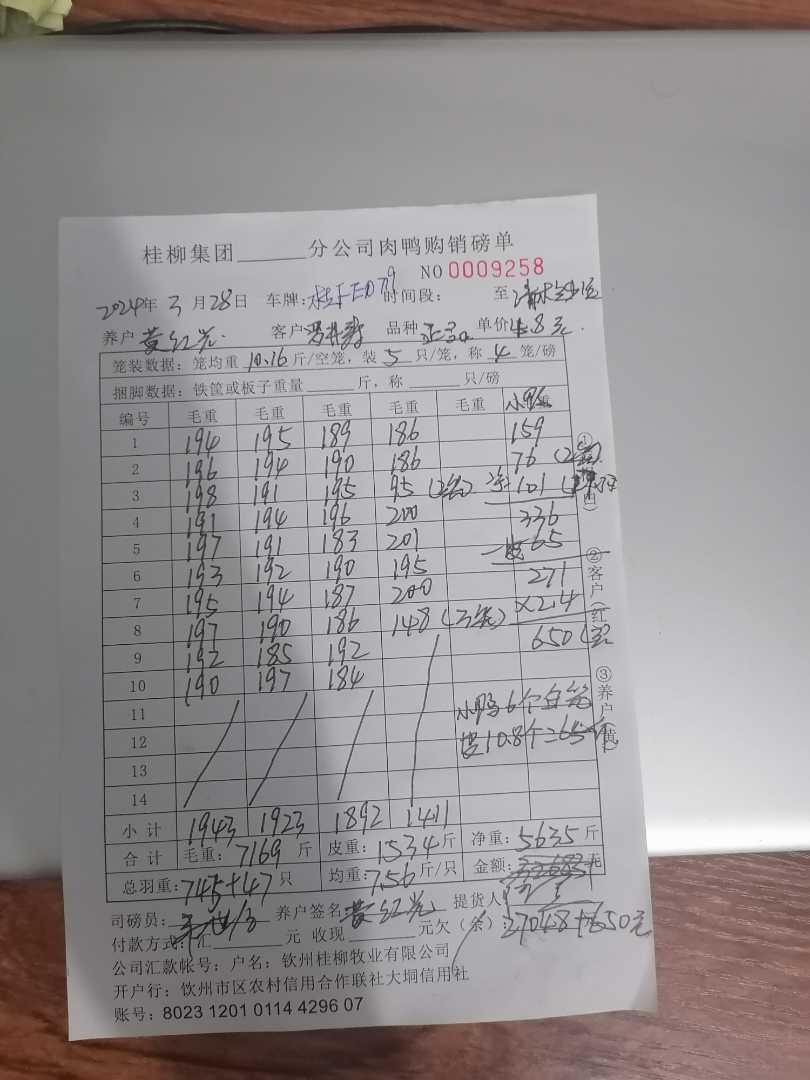 桂柳集团______分公司肉鸭购销磅单
NO 0009258
2024年 3 月 28日 车牌: 时间段: 至
养户 黄红兰 客户 品种 单价 4.8 元
笼装数据: 笼均重 10.16 斤/空笼, 装 5 只/笼, 称 4 笼/磅
捆脚数据: 铁筐或板子重量______斤, 称______只/磅
编号 毛重 毛重 毛重 毛重 毛重 小鸭
1 194 195 189 186 159
2 196 194 190 186 76 (2笼)
3 198 191 195 95 (2笼) 101
4 191 194 196 200 336
5 197 191 183 201 65
6 193 192 190 195 271
7 195 194 187 200 ×2.4
8 197 190 186 148 (3笼) 650
9 192 185 192
10 190 197 184
11 小鸭6个空笼
12 10.8个=65斤
13
14
小计 1943 1923 1892 1411
合计 毛重: 7169 斤 皮重: 1534 斤 净重: 5635 斤
总羽重: 745+47 只 均重: 7.56 斤/只 金额: 元
司磅员: 养户签名 黄红兰 提货人
付款方式: 汇______元 收现______元欠(余): 27048+650元
公司汇款帐号: 户名: 钦州桂柳牧业有限公司
开户行: 钦州市区农村信用合作联社大垌信用社
账号: 8023 1201 0114 4296 07
①
②客户(红
③养户(黄)